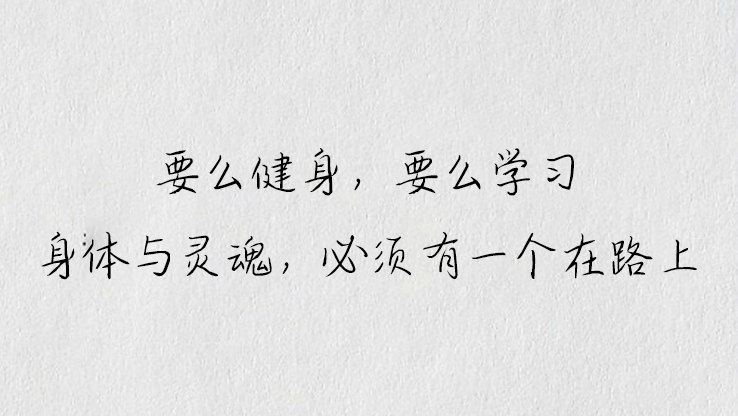 要么健身，要么学习
身体与灵魂，必须有一个在路上